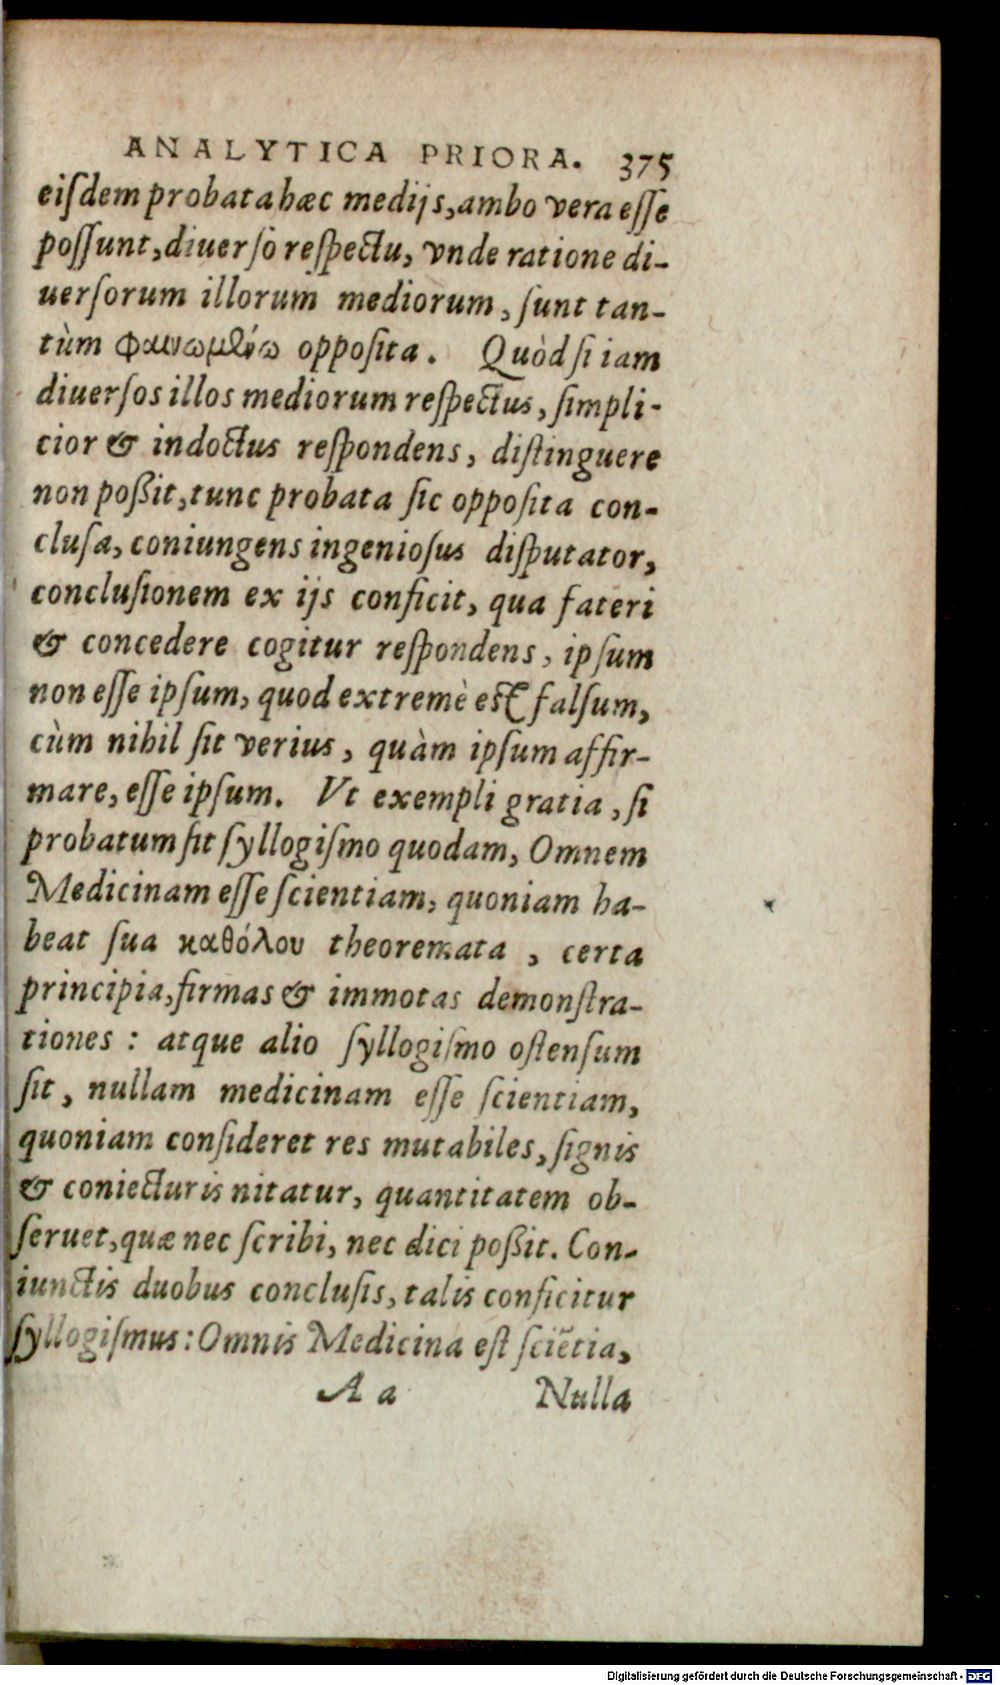 ANALYTICA PRIORA. 375
eiſdem probata hæc medijs, ambo vera eſſe
poſſunt, diuerſò reſpectu, vnde ratione di-
uerſorum illorum mediorum, ſunt tan-
tùm φαινωμλύω oppoſita. Quòd ſi iam
diuerſos illos mediorum reſpectus, ſimpli-
cior & indoctus reſpondens, diſtinguere
non poßit, tunc probata ſic oppoſita con-
cluſa, coniungens ingenioſus diſputator,
concluſionem ex ijs conficit, qua fateri
& concedere cogitur reſpondens, ipſum
non eſſe ipſum, quod extremè eſt falſum,
cùm nihil ſit verius, quàm ipſum affir-
mare, eſſe ipſum. Vt exempli gratia, ſi
probatum ſit ſyllogiſmo quodam, Omnem
Medicinam eſſe ſcientiam, quoniam ha-
beat ſua καθόλου theoremata, certa
principia, firmas & immotas demonſtra-
tiones: atque alio ſyllogiſmo oſtenſum
ſit, nullam medicinam eſſe ſcientiam,
quoniam conſideret res mutabiles, ſignis
& coniecturis nitatur, quantitatem ob-
ſeruet, quæ nec ſcribi, nec dici poßit. Con-
iunctis duobus concluſis, talis conficitur
ſyllogiſmus: Omnis Medicina eſt ſciētia,
A a Nulla
Digitalisierung gefördert durch die Deutsche Forschungsgemeinschaft - DFG